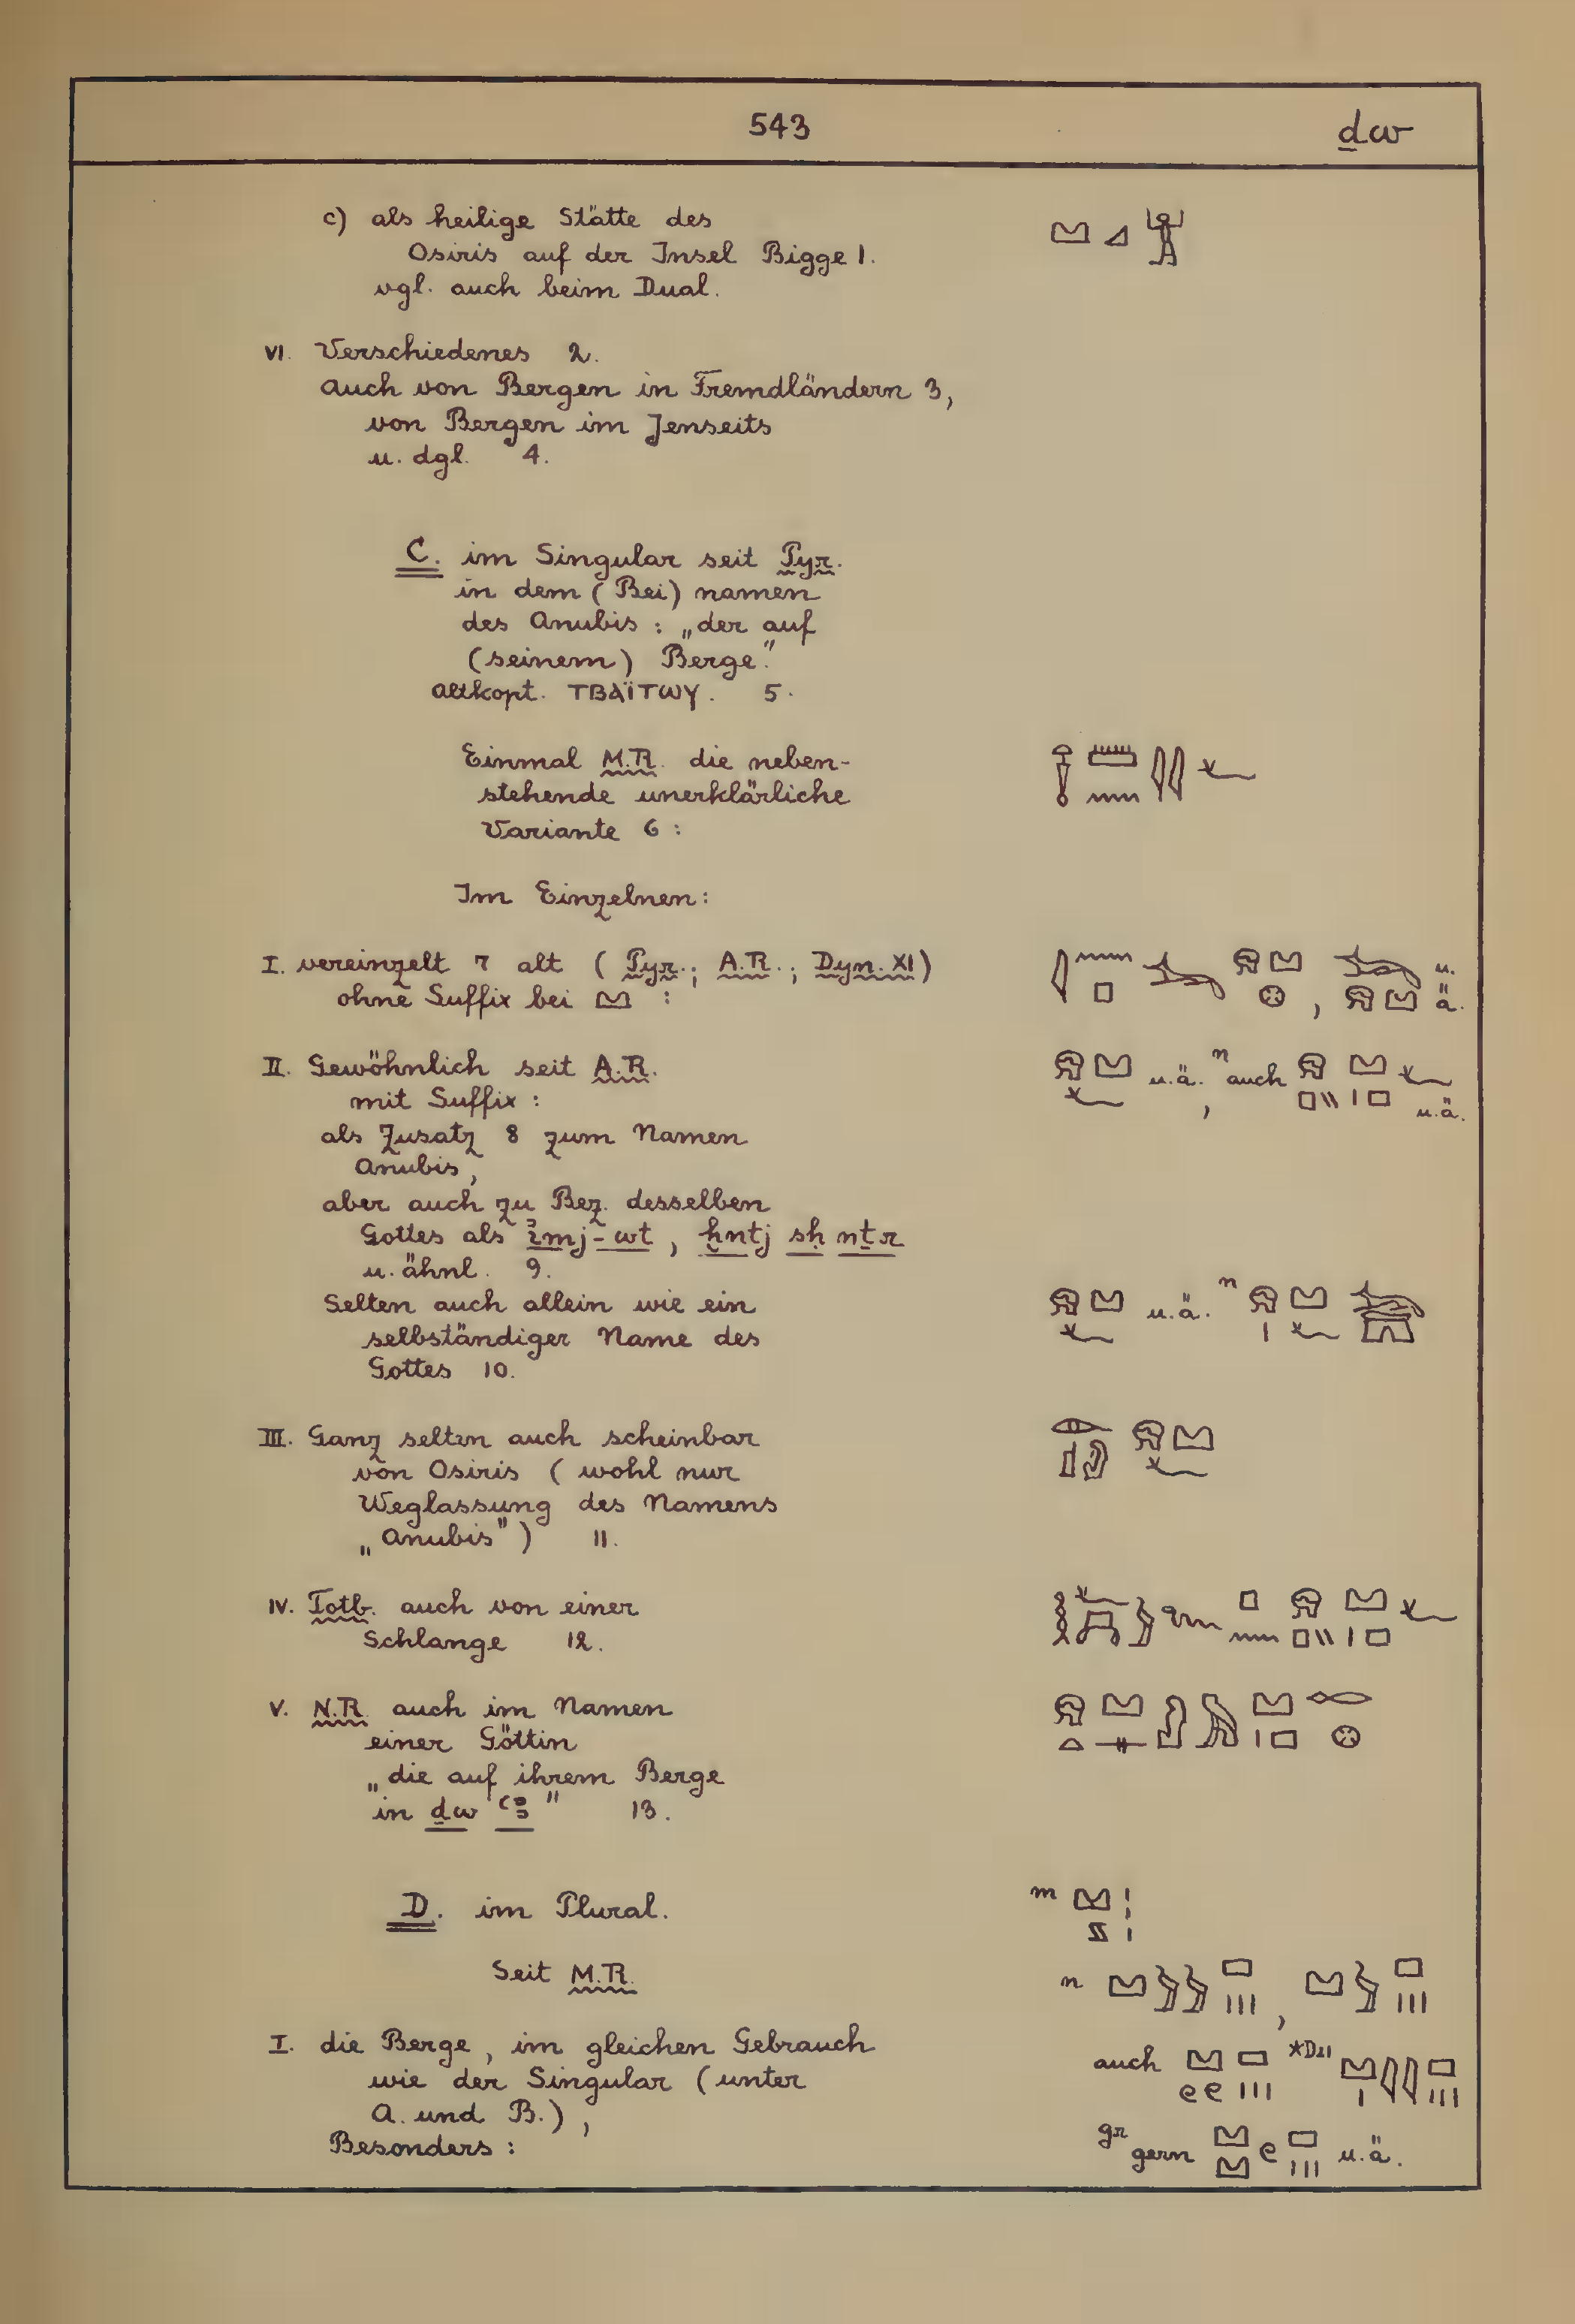 543 ḏw
c) als heilige Stätte des
Osiris auf der Insel Bigge 1.
vgl. auch beim Dual.
VI. Verschiedenes 2.
auch von Bergen in Fremdländern 3,
von Bergen im Jenseits
u. dgl. 4.
C. im Singular seit Pyr.
in dem (Bei) namen
des Anubis: „der auf
(seinem) Berge."
altkopt. ⲧⲃⲁⲓ̈ⲧⲱⲩ. 5.
Einmal M.R. die neben-
stehende unerklärliche
Variante 6:
Im Einzelnen:
I. vereinzelt 7 alt (Pyr.; A.R.; Dyn. XI) , u.
ohne Suffix bei 𓈋 : ä.
II. Gewöhnlich seit A.R. u.ä. , n auch
mit Suffix: u.ä.
als Zusatz 8 zum Namen
Anubis,
aber auch zu Bez. desselben
Gottes als ꞽmj-wt, ḫntj sḥ nṯr
u. ähnl. 9.
Selten auch allein wie ein u.ä. n
selbständiger Name des
Gottes 10.
III. Ganz selten auch scheinbar
von Osiris (wohl nur
Weglassung des Namens
„Anubis") 11.
IV. Totb. auch von einer
Schlange 12.
V. N.R. auch im Namen
einer Göttin
„die auf ihrem Berge
in ḏw ꜥꜣ" 13.
D. im Plural. m
Seit M.R. n ,
I. die Berge, im gleichen Gebrauch
wie der Singular (unter auch
A. und B.),
Besonders: gr gern u.ä.